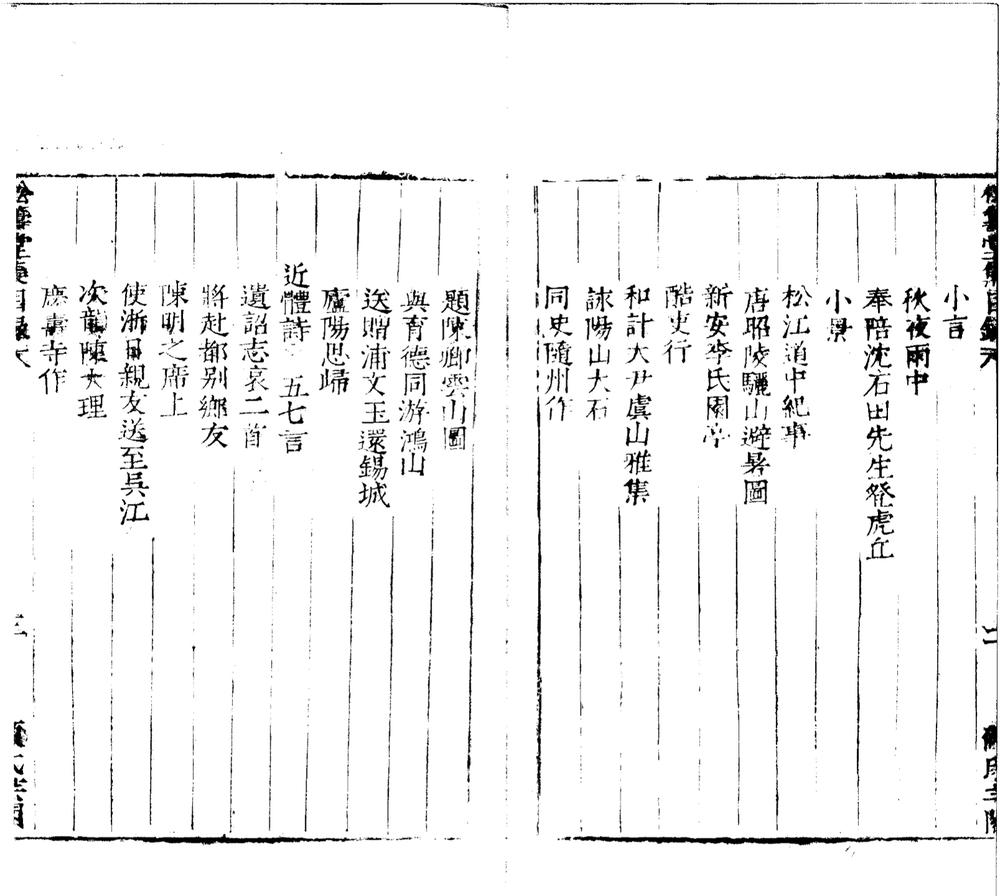 小言
秋夜雨中
奉陪沈石田先生登虎丘
小景
松江道中紀事
唐昭陵驪山避暑圖
新安李氏園亭
酷吏行
和計大尹虞山雅集
詠陽山大石
同史隨州作
題陳卿雲山圖
與育德同游鴻山
送贈浦文玉還錫城
廬陽思歸
近體詩 五七言
遺詔志哀二首
將赴都别鄉友
陳明之席上
使浙日親友送至吳江
次韻陳大理
慶壽寺作
三